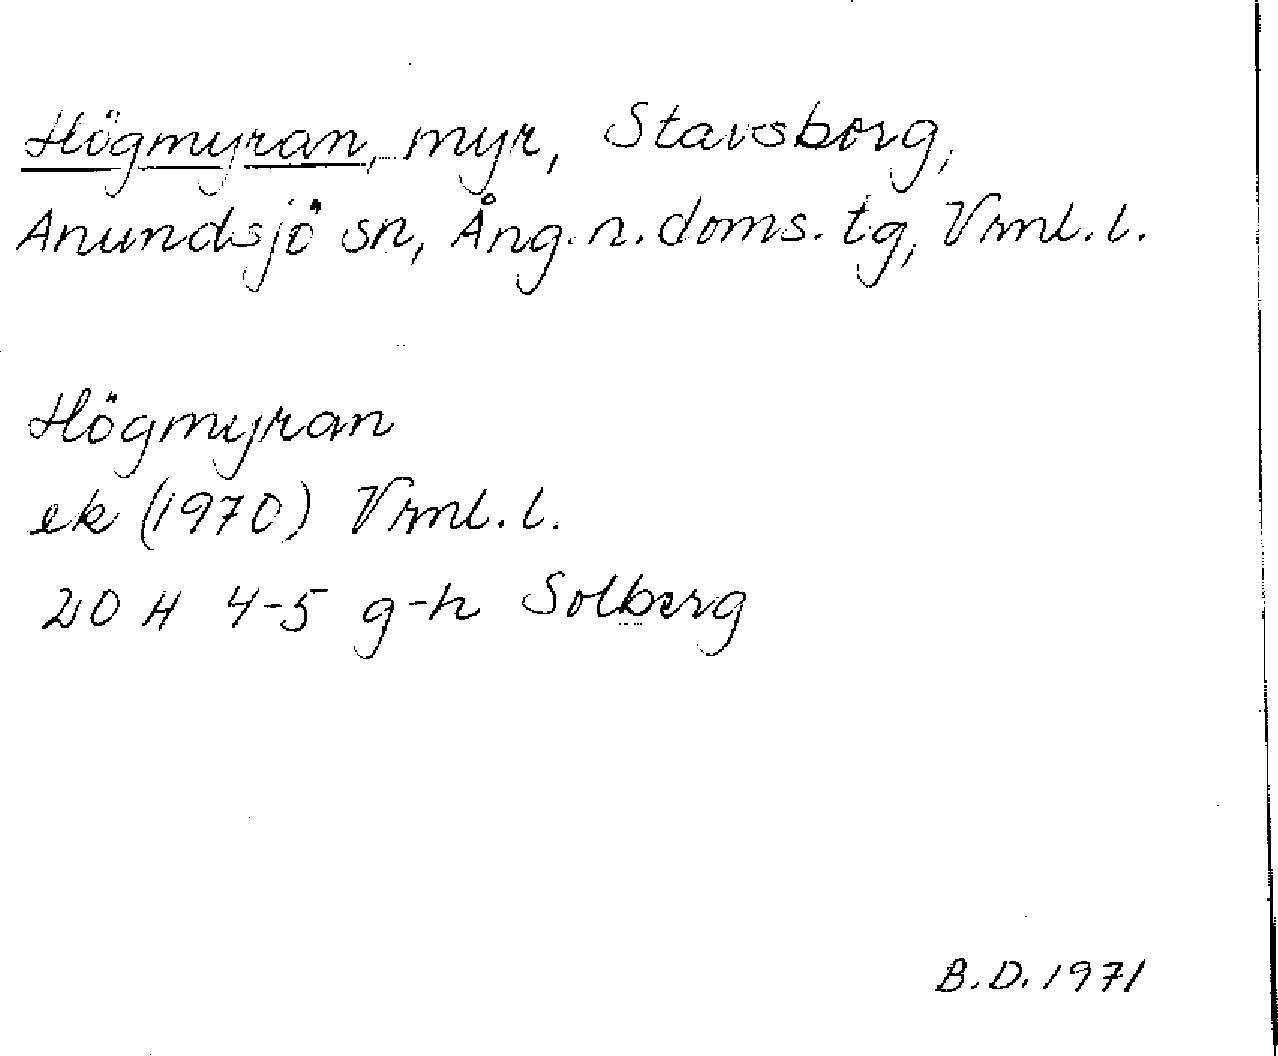 Högmyran, myr, Stavsborg,
Anundsjö sn, Ång. n. doms. tg, Vrml. l.
Högmyran
ek (1970) Vrml. l.
20 H 4-5 g-h Solberg
B.D. 1971